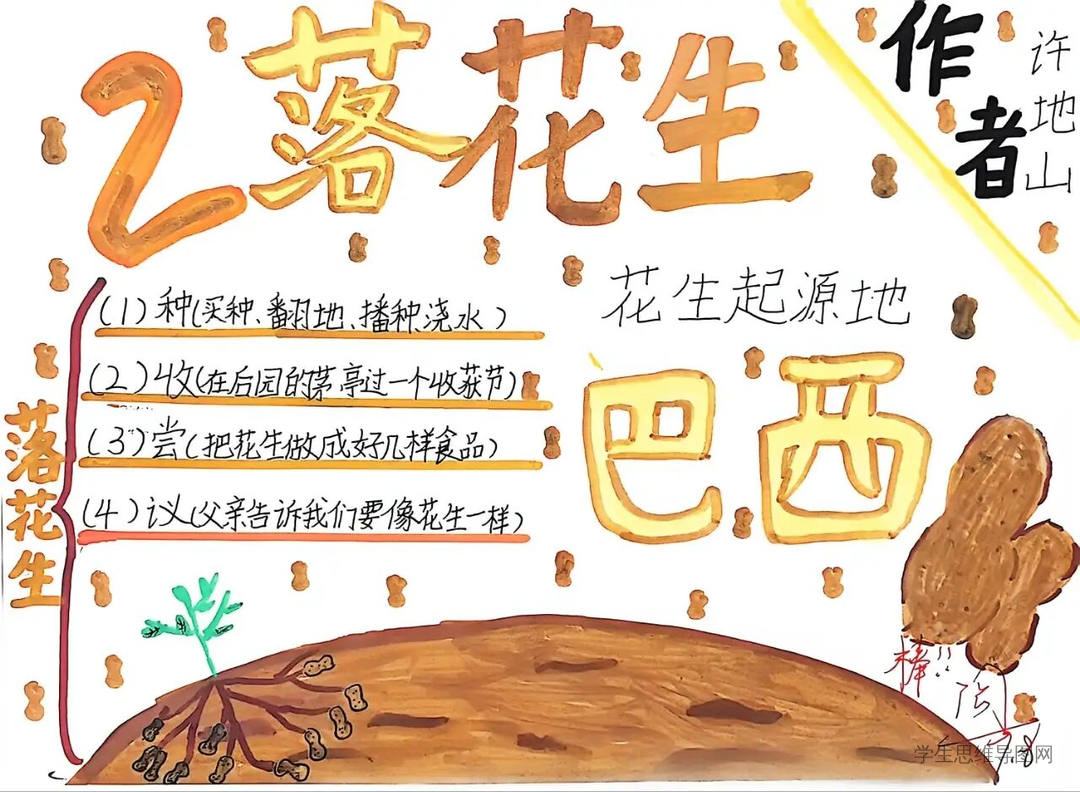 2落花生
作者
许地山
花生起源地
巴西
落花生
(1)种(买种、翻地、播种浇水)
(2)收(在后园的茅亭过一个收获节)
(3)尝(把花生做成好几样食品)
(4)议(父亲告诉我们要像花生一样)
棒!!
阅
9.8
学生思维导图网